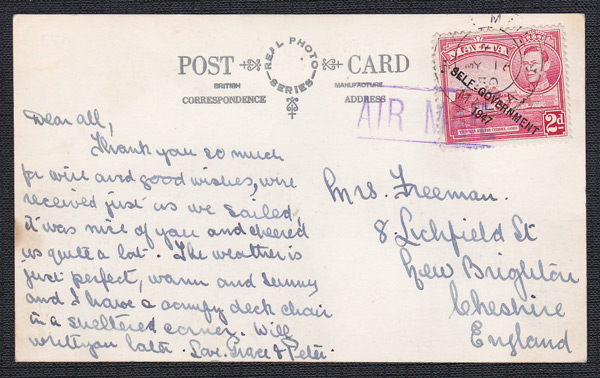 REAL PHOTO
SERIES
POST CARD
BRITISH MANUFACTURE
CORRESPONDENCE ADDRESS
AIR M
MALTA
MY 15
50
SELF-GOVERNMENT
1947
2d
Dear all,
Thank you so much
for wire and good wishes, wire
received just as we sailed,
it was nice of you and cheered
us quite a lot. The weather is
just perfect, warm and sunny
and I have a comfy deck chair
in a sheltered corner. Will
write you later. Love. Grace & Peter.
Mrs. Freeman.
8. Lichfield St
New Brighton
Cheshire
England